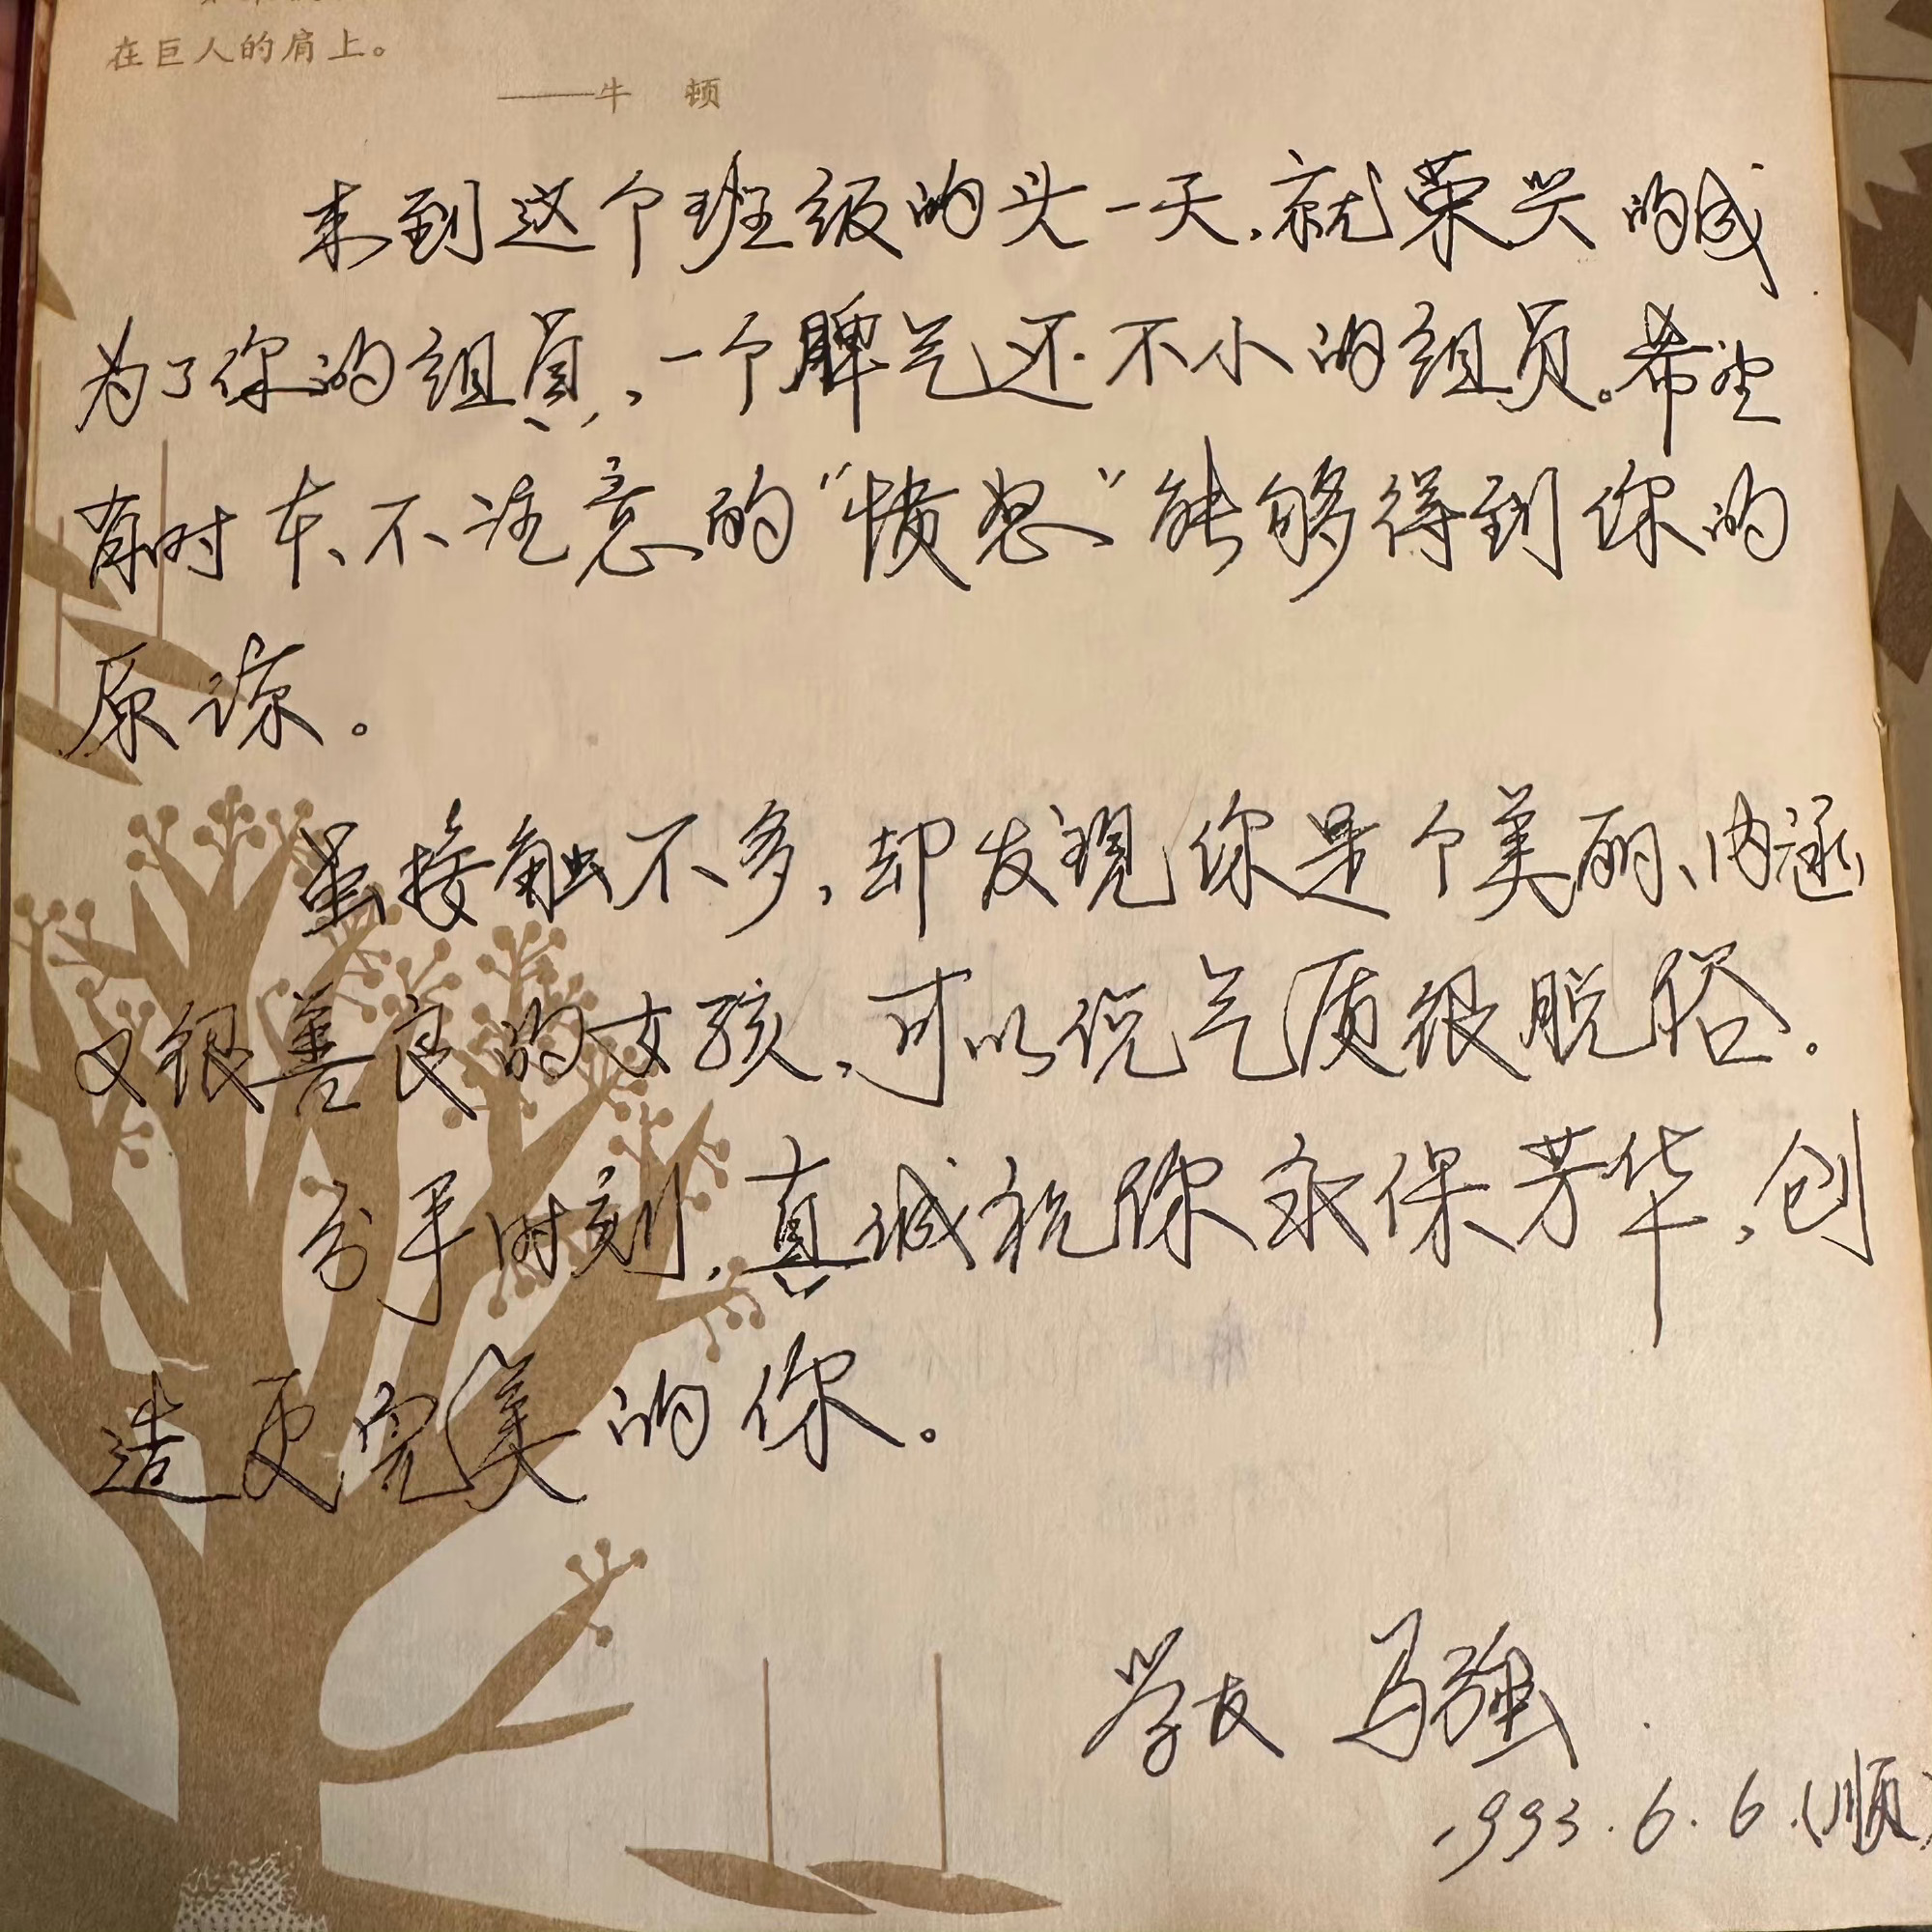 在巨人的肩上。
——牛 顿
来到这个班级的头一天,就荣兴的成
为了你的组员,一个脾气还不小的组员。希望
有时在不注意的“愤怒”能够得到你的
原谅。
虽接触不多,却发现你是个美丽、内涵
又很善良的女孩,可以说气质很脱俗.
分手时刻,真诚祝你永保芳华,创
造更完美的你。
学友 马强
1993.6.6.(顺)